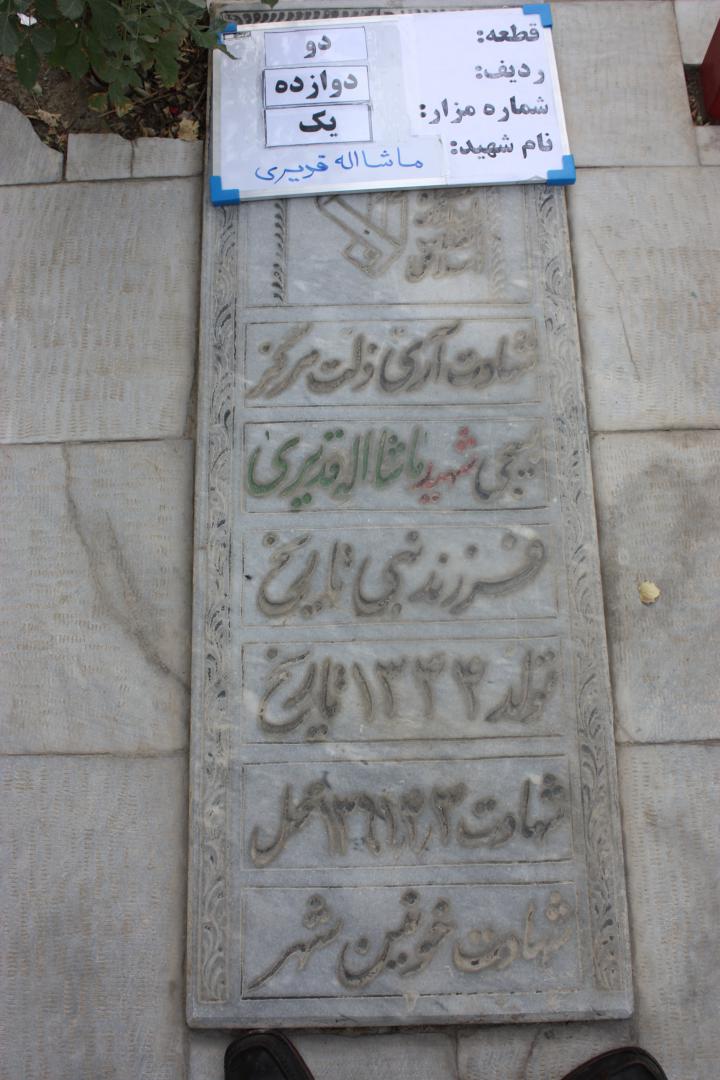 قطعه: دو
ردیف: دوازده
شماره مزار: یک
نام شهید: ماشااله قدیری
شهادت آری ذلت هرگز
بسیجی شهید ماشااله قدیری
فرزند نبی تاریخ
تولد ۱۳۴۴ تاریخ
شهادت محل
شهادت خونین شهر